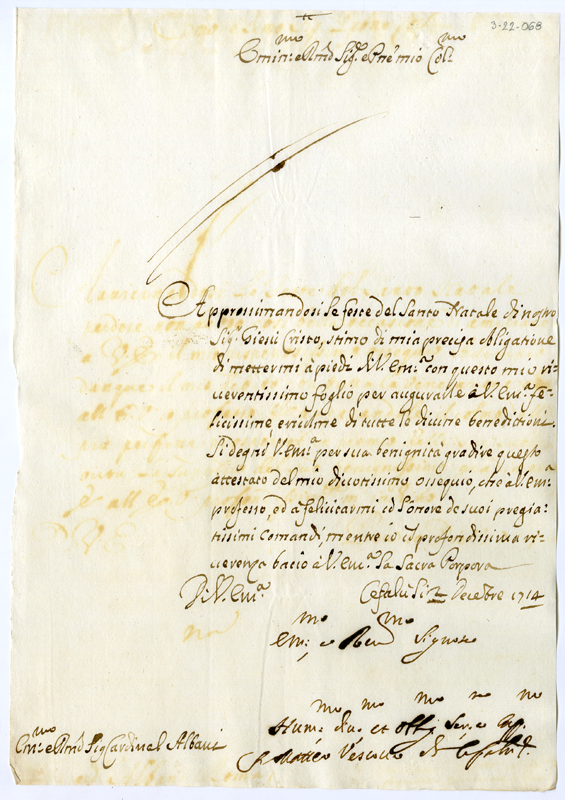 3-22-068
Emin.mo e Rmo Sig.r e Pne mio Col.mo
Approssimandosi le feste del Santo Natale di nostro
Sig.r Giesù Cristo, stimo di mia precisa obligatione
di mettermi à piedi di V. Em.a con questo mio ri-
verentissimo foglio per augurarle à V. Em.a fe-
licissime, e ricolme di tutte le divine benedittioni.
Si degni V. Em.a per sua benignità gradire questo
attestato del mio divotissimo ossequio, che à V. Em.a
professo, ed a felicitarmi co l'onore de suoi pregia-
tissimi comandi, mentre io co profondissima ri-
verenza bacio à V. Em.a la Sacra Porpora
Di V. Em.a Cefalù li Decebre 1714
Em.mo e Rev.mo Signore
Em.mo e Rmo Sig Cardinal Albani
Hum.mo div.mo et obb.mo
Matteo Vescovo di Cefalù